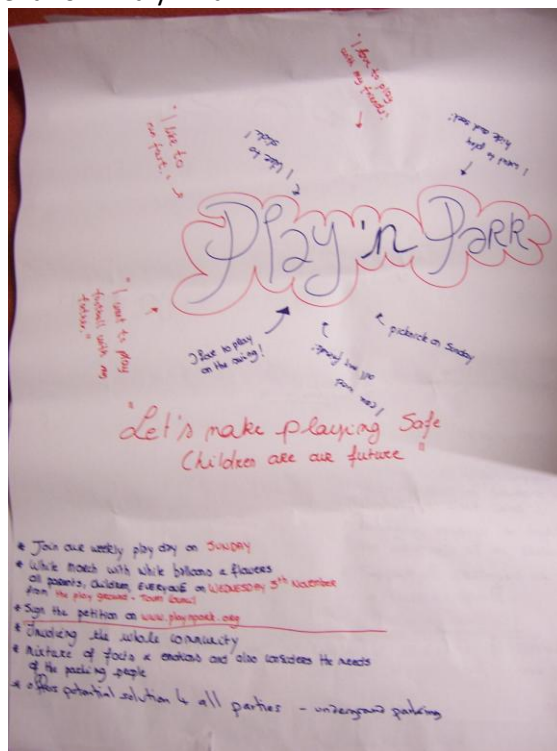 "I love to play
with my friends"
"I like to
run fast."
I like to
slide!
I want to play
hide and seek!
Play'n Park
"I want to play
football with my
father."
I love to play
on the swing!
I can meet
all my friends
picknick on Sunday
"Let's make playing Safe
Children are our future"
* Join our weekly play day on SUNDAY
* White March with white balloons & flowers
all parents, children, EVERYONE on WEDNESDAY 5th NOVEMBER
from the play ground - Town Council
* Sign the petition on www.playnpark.org
* Involving the whole community
* Mixture of facts & emotions and also considers the needs
of the parking people
* offers potential solution 4 all parties - underground parking